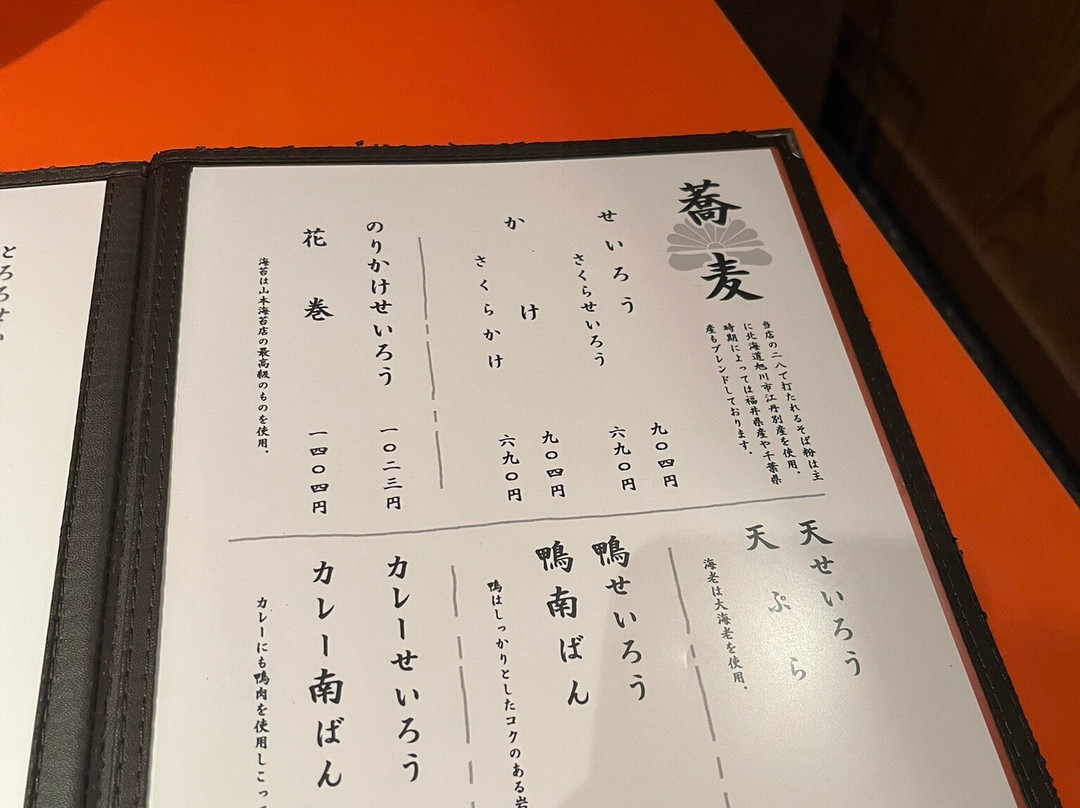 蕎麦
当店の二八で打たれるそば粉は主
に北海道旭川市江丹別産を使用。
時期によっては福井県産や千葉県
産もブレンドしております。
せいろう 九〇四円
さくらせいろう 六九〇円
かけ 九〇四円
さくらかけ 六九〇円
のりかけせいろう 一〇二三円
花巻 一四〇四円
海苔は山本海苔店の最高級のものを使用。
天せいろう
天ぷら
海老は大海老を使用。
鴨せいろう
鴨南ばん
鴨はしっかりとしたコクのある岩
カレーせいろう
カレー南ばん
カレーにも鴨肉を使用しこっ
とろろせ